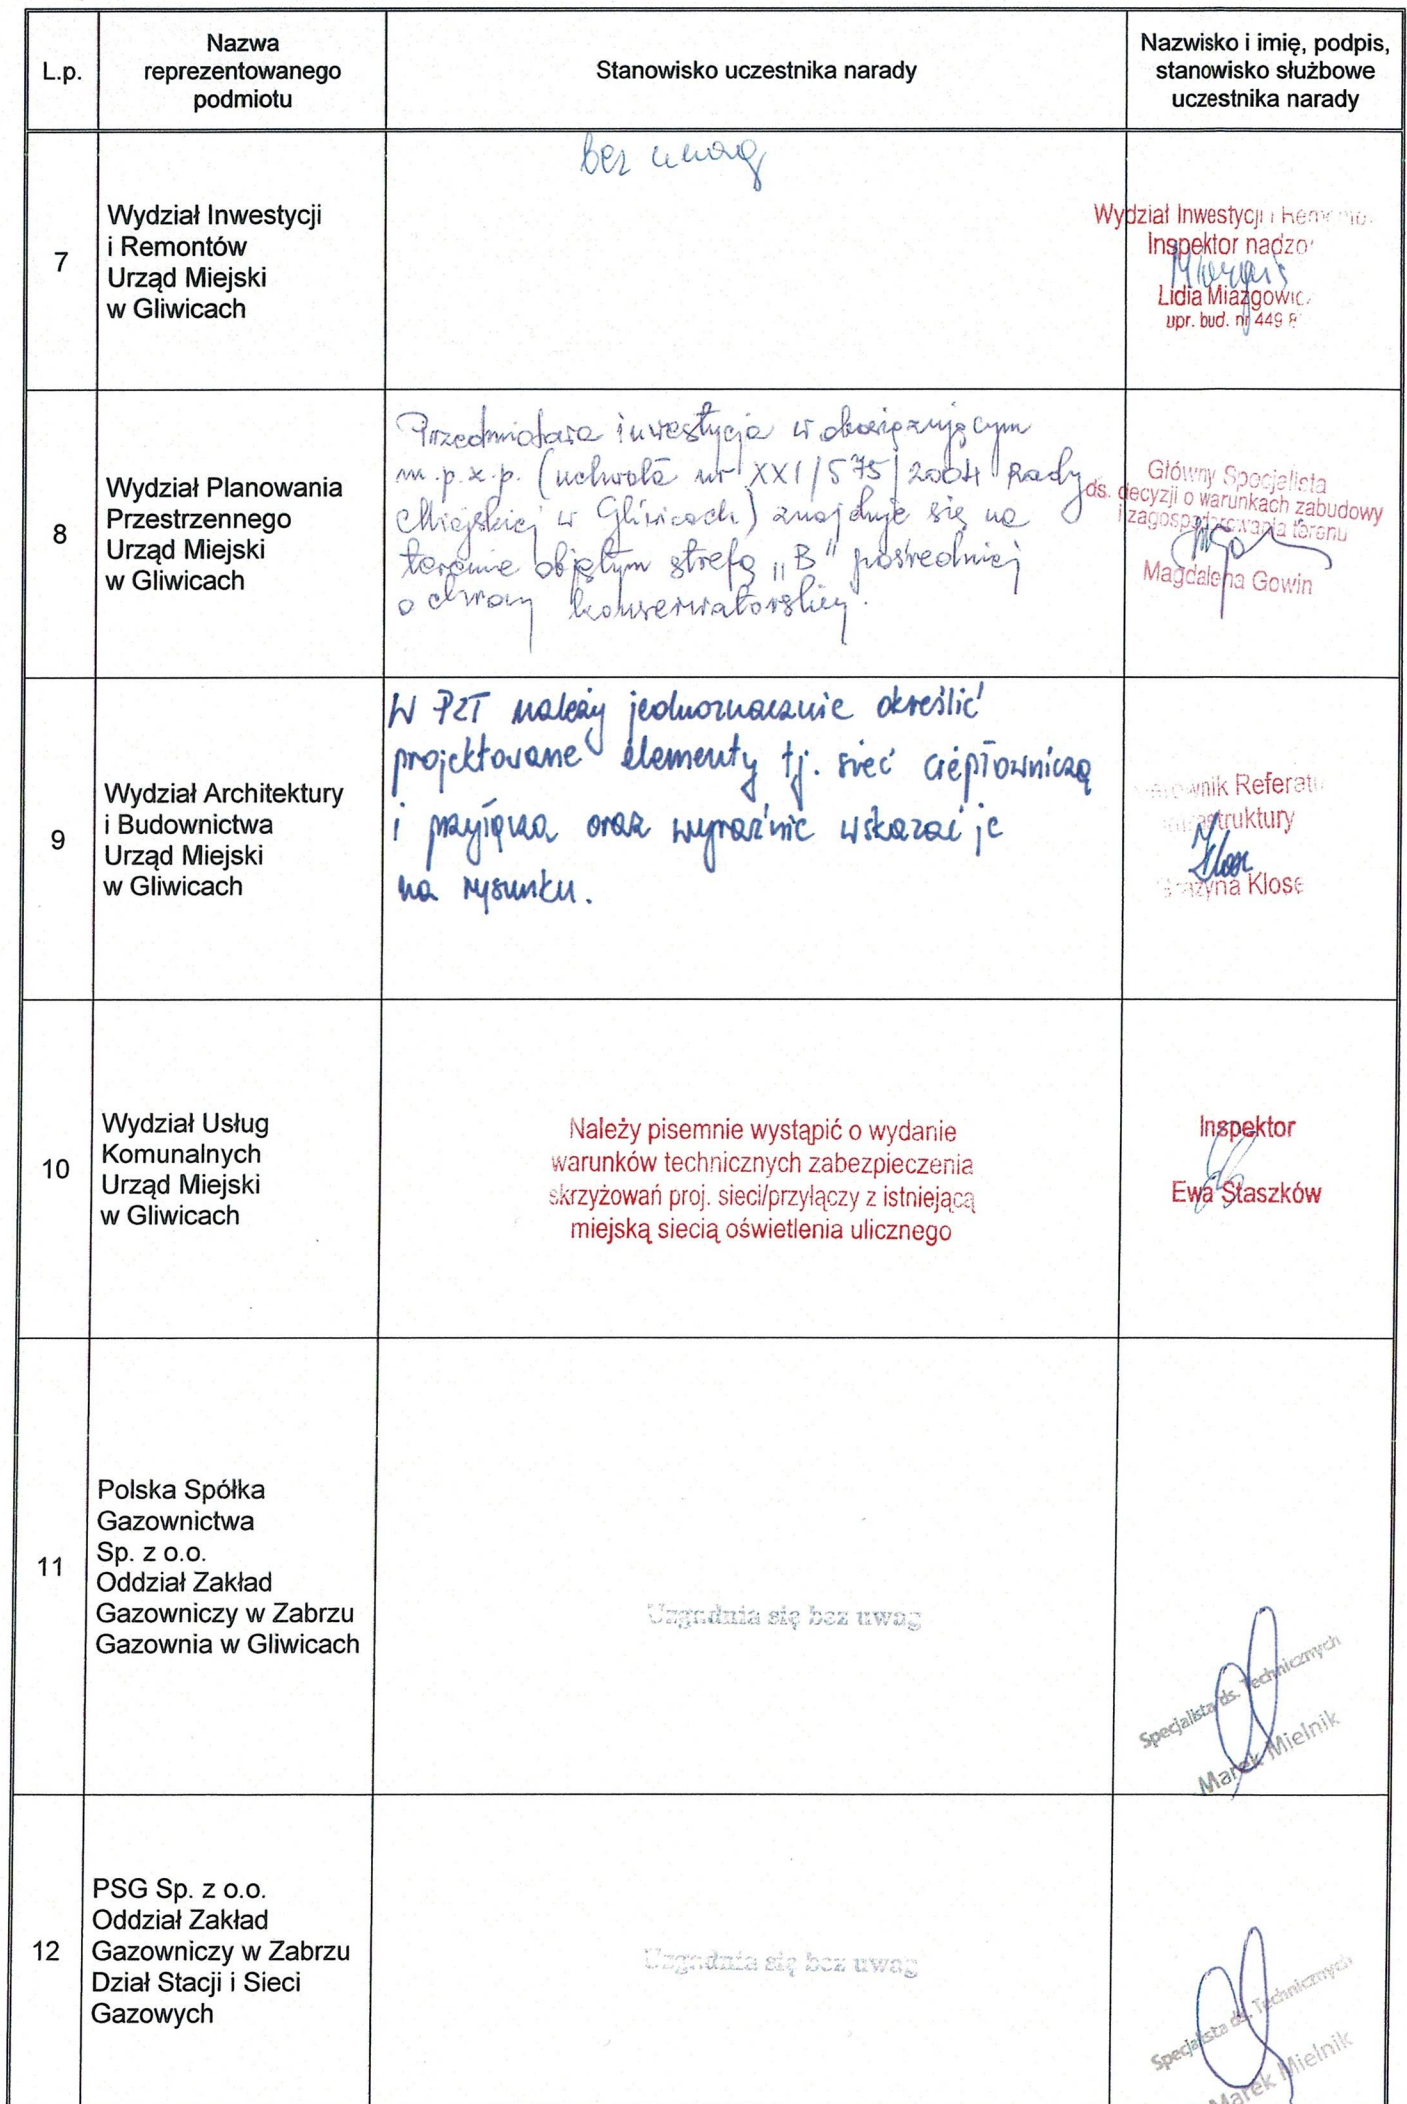 L.p.
Nazwa
reprezentowanego
podmiotu
Stanowisko uczestnika narady
Nazwisko i imię, podpis,
stanowisko służbowe
uczestnika narady
7
Wydział Inwestycji
i Remontów
Urząd Miejski
w Gliwicach
bez uwag
Wydział Inwestycji i Remontó
Inspektor nadzo
Lidia Miazgowic
upr. bud. nr 449 8
8
Wydział Planowania
Przestrzennego
Urząd Miejski
w Gliwicach
Przedmiotowa inwestycja w obowiązującym
m.p.z.p. (uchwała nr XXI/575/2004 Rady
Miejskiej w Gliwicach) znajduje się na
terenie objętym strefą „B" pośredniej
ochrony konserwatorskiej.
Główny Specjalista
ds. decyzji o warunkach zabudowy
i zagospodarowania terenu
Magdalena Gowin
9
Wydział Architektury
i Budownictwa
Urząd Miejski
w Gliwicach
W PZT należy jednoznacznie określić
projektowane elementy tj. sieć ciepłowniczą
i przyłącza oraz wyraźnie wskazać je
na rysunku.
Kierownik Referatu
Infrastruktury
Grażyna Klose
10
Wydział Usług
Komunalnych
Urząd Miejski
w Gliwicach
Należy pisemnie wystąpić o wydanie
warunków technicznych zabezpieczenia
skrzyżowań proj. sieci/przyłączy z istniejącą
miejską siecią oświetlenia ulicznego
Inspektor
Ewa Staszków
11
Polska Spółka
Gazownictwa
Sp. z o.o.
Oddział Zakład
Gazowniczy w Zabrzu
Gazownia w Gliwicach
Uzgadnia się bez uwag
Specjalista ds. Technicznych
Marek Mielnik
12
PSG Sp. z o.o.
Oddział Zakład
Gazowniczy w Zabrzu
Dział Stacji i Sieci
Gazowych
Uzgadnia się bez uwag
Specjalista ds. Technicznych
Marek Mielnik